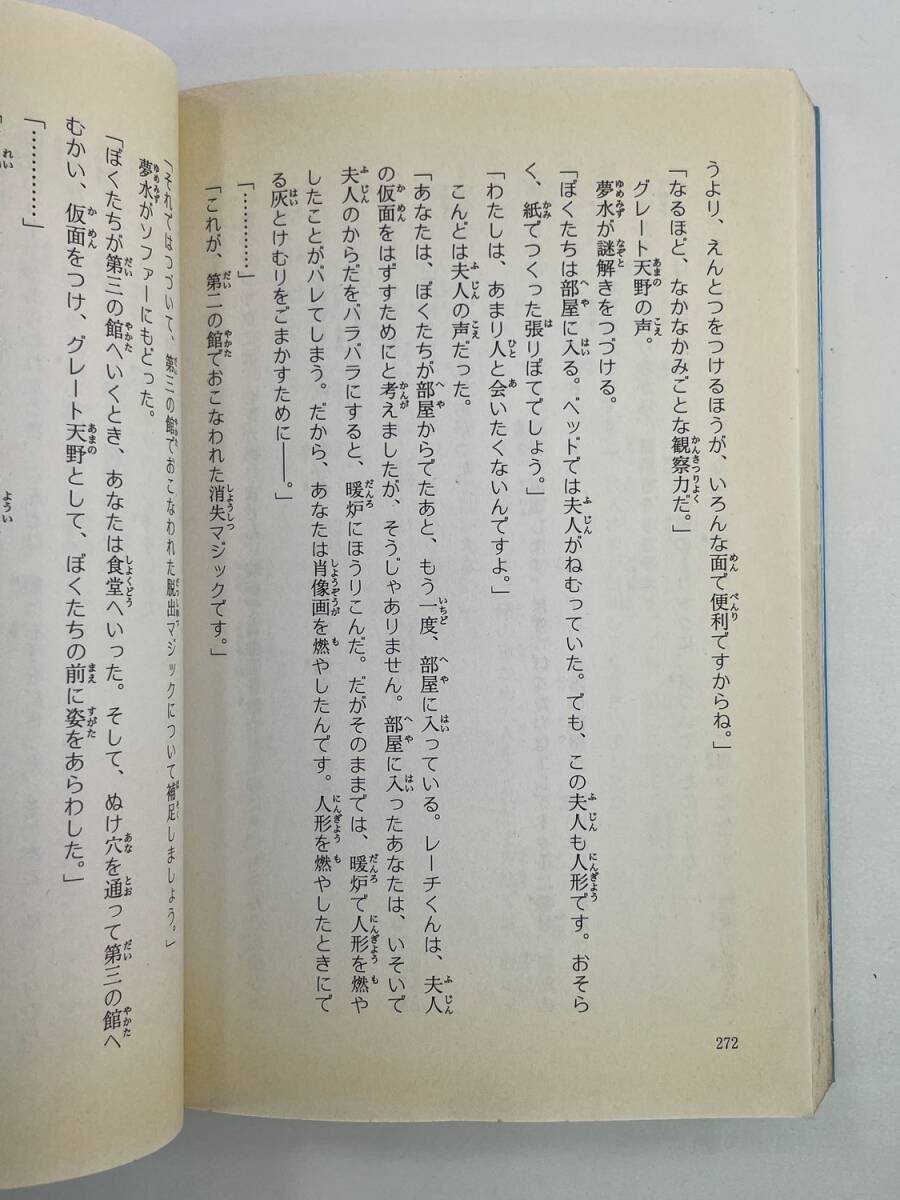 うより、えんとつをつけるほうが、いろんな面で便利ですからね。」
「なるほど、なかなかみごとな観察力だ。」
グレート天野の声。
夢水が謎解きをつづける。
「ぼくたちは部屋に入る。ベッドでは夫人がねむっていた。でも、この夫人も人形です。おそら
く、紙でつくった張りぼてでしょう。」
「わたしは、あまり人と会いたくないんですよ。」
こんどは夫人の声だった。
「あなたは、ぼくたちが部屋からでたあと、もう一度、部屋に入っている。レーチくんは、夫人
の仮面をはずすためにと考えましたが、そうじゃありません。部屋に入ったあなたは、いそいで
夫人のからだをバラバラにすると、暖炉にほうりこんだ。だがそのままでは、暖炉で人形を燃や
したことがバレてしまう。だから、あなたは肖像画を燃やしたんです。人形を燃やしたときにで
る灰とけむりをごまかすために――。」
「…………」
「これが、第二の館でおこなわれた消失マジックです。」
272
「それではつづいて、第三の館でおこなわれた脱出マジックについて補足しましょう。」
夢水がソファーにもどった。
「ぼくたちが第三の館へいくとき、あなたは食堂へいった。そして、ぬけ穴を通って第三の館へ
むかい、仮面をつけ、グレート天野として、ぼくたちの前に姿をあらわした。」
「…………」